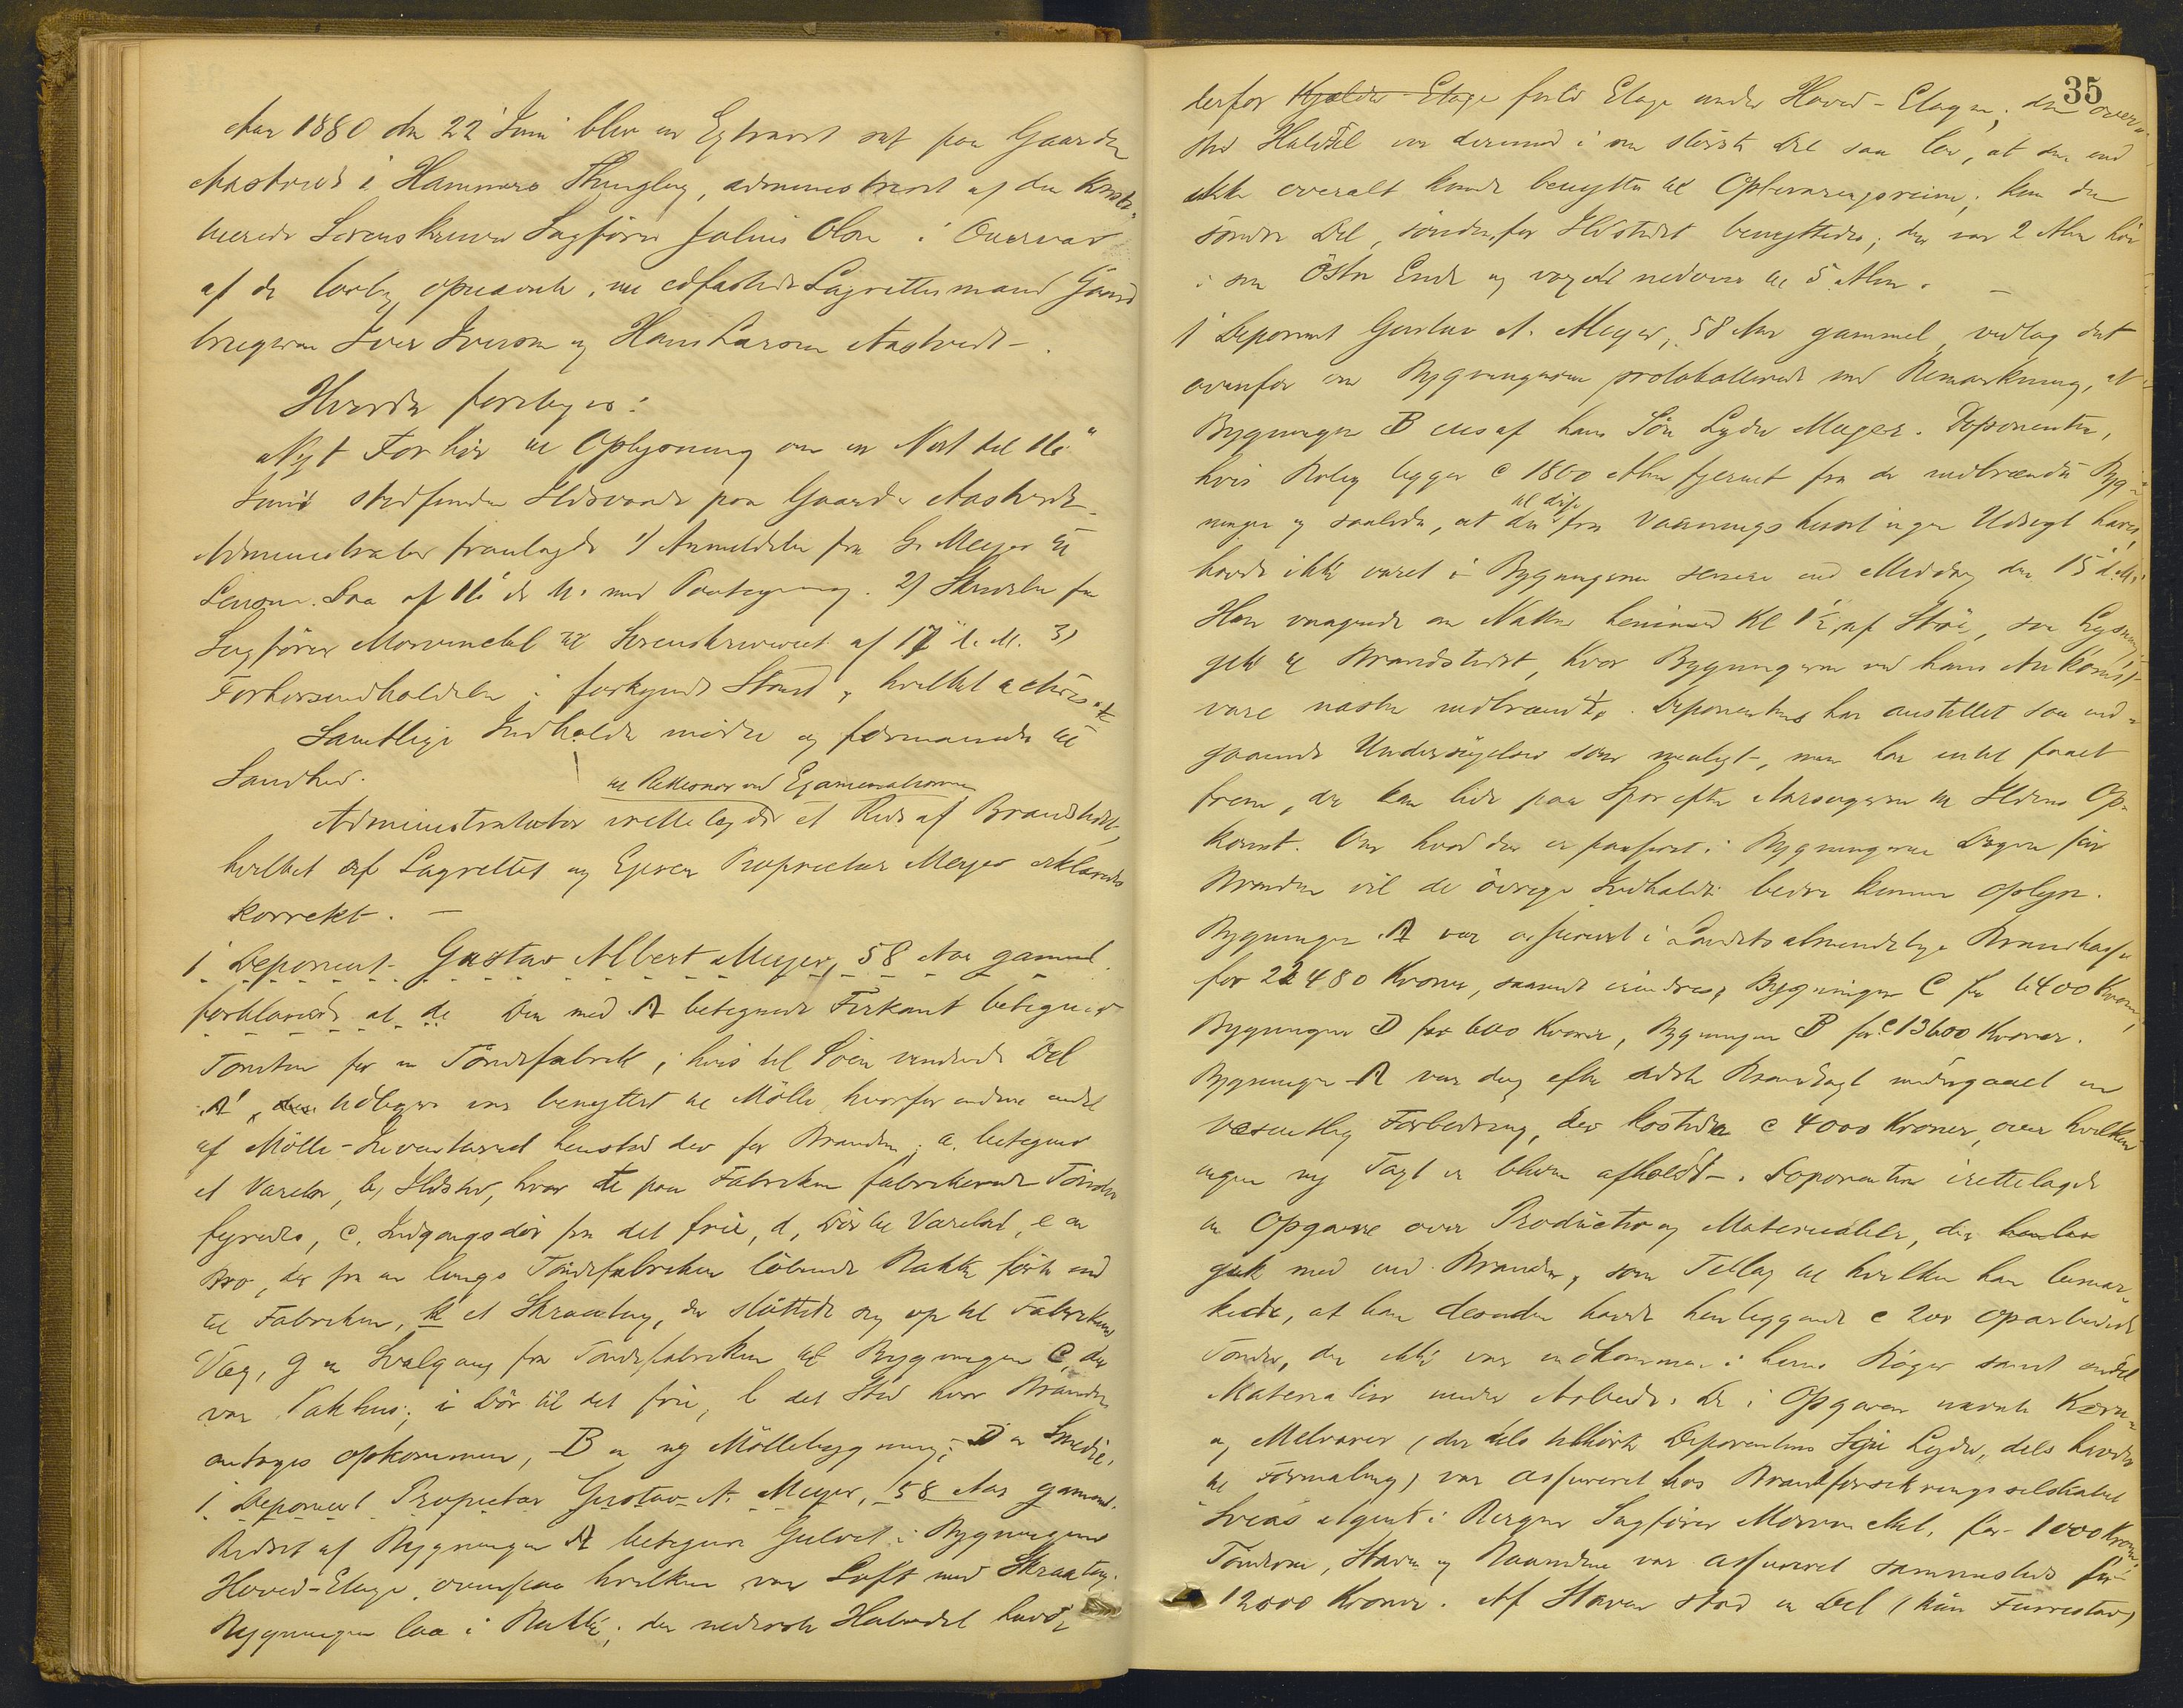 Aar 1880 den 22 Juni blev en Extraret sat paa Gaarden
Aastvedt i Hammers Thinglag, administreret af den konsti-
tuerede Sorenskriver Sagfører Julius Olsen i Overvær
af de lovlig opnævnte, nu edfæstede Lagrettesmænd Gaard
brugerne Iver Iversen og Hans Larsen Aastvedt.
Hvorda foretoges:
Nyt Forhør til Oplysning om en Nat til 16
Juni stedfunden Ildsvaade paa Gaarden Aastvedt.
Administrator fremlagde 1) Anmeldelse fra G. Meyer til
af 16 ds M. med Paategning. 2) Skrivelse fra
Sagfører Mowinckel til Sorenskriveriet af 17 d. M. 3)
i forkyndt Stand, hvilket
Samtlige Indkaldte mødte og formanedes til
Sandhed.
til Retledning ved Examinationen
Administrator irettelagde et Rids af Brandstedet,
hvilket af Lagrettet og Ejeren Proprietær Meyer erklæredes
korrekt. —
1 Deponent Gustav Albert Meyer, 58 Aar gammel
forklarede at de Den med A betegnede Firkant betegner
Tomten for en Tøndefabrik, i hvis til Søen vendende Del
A' tidligere var benyttet til Mølle, hvorfor endnu endel
af Mølle-Inventariet henstod der før Branden; a. betegner
et Værelse, b, Ildsted, hvor de paa Fabriken fabrikerede Tønder
fyredes, c, Indgangsdør fra det frie, d, Dør til Værelset, e en
Bro, der fra en langs Tøndefabriken løbende Bakke førte ind
til Fabriken, k et Skraatag, der støttede sig op til Fabrikens
Væg, g en Svalgang fra Tøndefabriken til Bygningen C, der
var Pakhus; i Dør til det frie, l det Sted hvor Branden
antages opkommen, B en ny Møllebygning; D en Smedie.
1 Deponent Proprietær Gustav A. Meyer, 58 Aar gammel.
Ridset af Bygningen A betegner Gulvet i Bygningens
Hoved-Etage, ovenpaa hvilken var Loft med Skraatag.
Bygningen laa i Bakke; den nederste Halvdel havde
35
derfor Kjælder-Etage fuld Etage under Hoved-Etagen; den øver-
ste Halvdel var derimod i sin største Del saa lav, at den end
ikke overalt kunde benyttes til Opbevaringsrum; kun den
søndre Del, søndenfor Ildstedet benyttedes; der var 2 Alen høi
i sin Østre Ende og voxede nedover til 5 Alen. —
1 Deponent Gustav A. Meyer, 58 Aar gammel, vedtog det
ovenfor om Bygningerne protokollerede med Bemærkning, at
Bygningen B eies af hans Søn Lyder Meyer. Deponenten,
hvis Bolig ligger c 1800 Alen fjernet fra de nedbrændte Byg-
til disse
ninger og saaledes, at der fra Vaaningshuset ingen Udsigt haves,
havde ikke været i Bygningerne senere end Middag den 15 d. M.
Han vaagnede om Natten henimod Kl 1½ af Støi, saa Lysning
gik til Brandstedet, hvor Bygningerne ved hans Ankomst
vare næsten nedbrændte. Deponenten har anstillet saa ind-
gaaende Undersøgelser som muligt, men har intet faaet
frem, der kan lede paa Spor efter Aarsagerne til Ildens Op-
komst. Om hvad der er passeret i Bygningerne Dagen før
Branden vil de øvrige Indkaldte bedre kunne oplyse.
Bygningen A var assureret i Landets almindelige Brandkasse
for 22480 Kroner, saavidt erindres, Bygningen C for 6400 Kroner,
Bygningen D for 600 Kroner, Bygningen B for c 13600 Kroner.
Bygningen A var dog efter sidste Brandtaxt undergaaet en
væsentlig Forbedring, der kostede c 4000 Kroner, over hvilken
ingen ny Taxt er bleven afholdt. Deponenten irettelagde
en Opgave over Producter og Materialier, der
gik med ved Branden, som Tillæg til hvilken han bemær-
kede, at han desuden havde henliggende c 200 oparbeidede
Tønder, der ikke var indkommen i hans Bøger samt endel
Materialier under Arbeide. De i Opgaven nævnte Korn-
og Melvarer (der dels tilhørte Deponentens Søn Lyder, dels havdes
til Formaling) var assureret hos Brandforsikringsselskabet
"Sveas" Agent i Bergen Sagfører Mowinckel, for 1000 Kroner.
Tønderne, Staver og Baandene var assureret sammesteds for
12000 Kroner. Af Staver stod en Del (kun Furrestav)